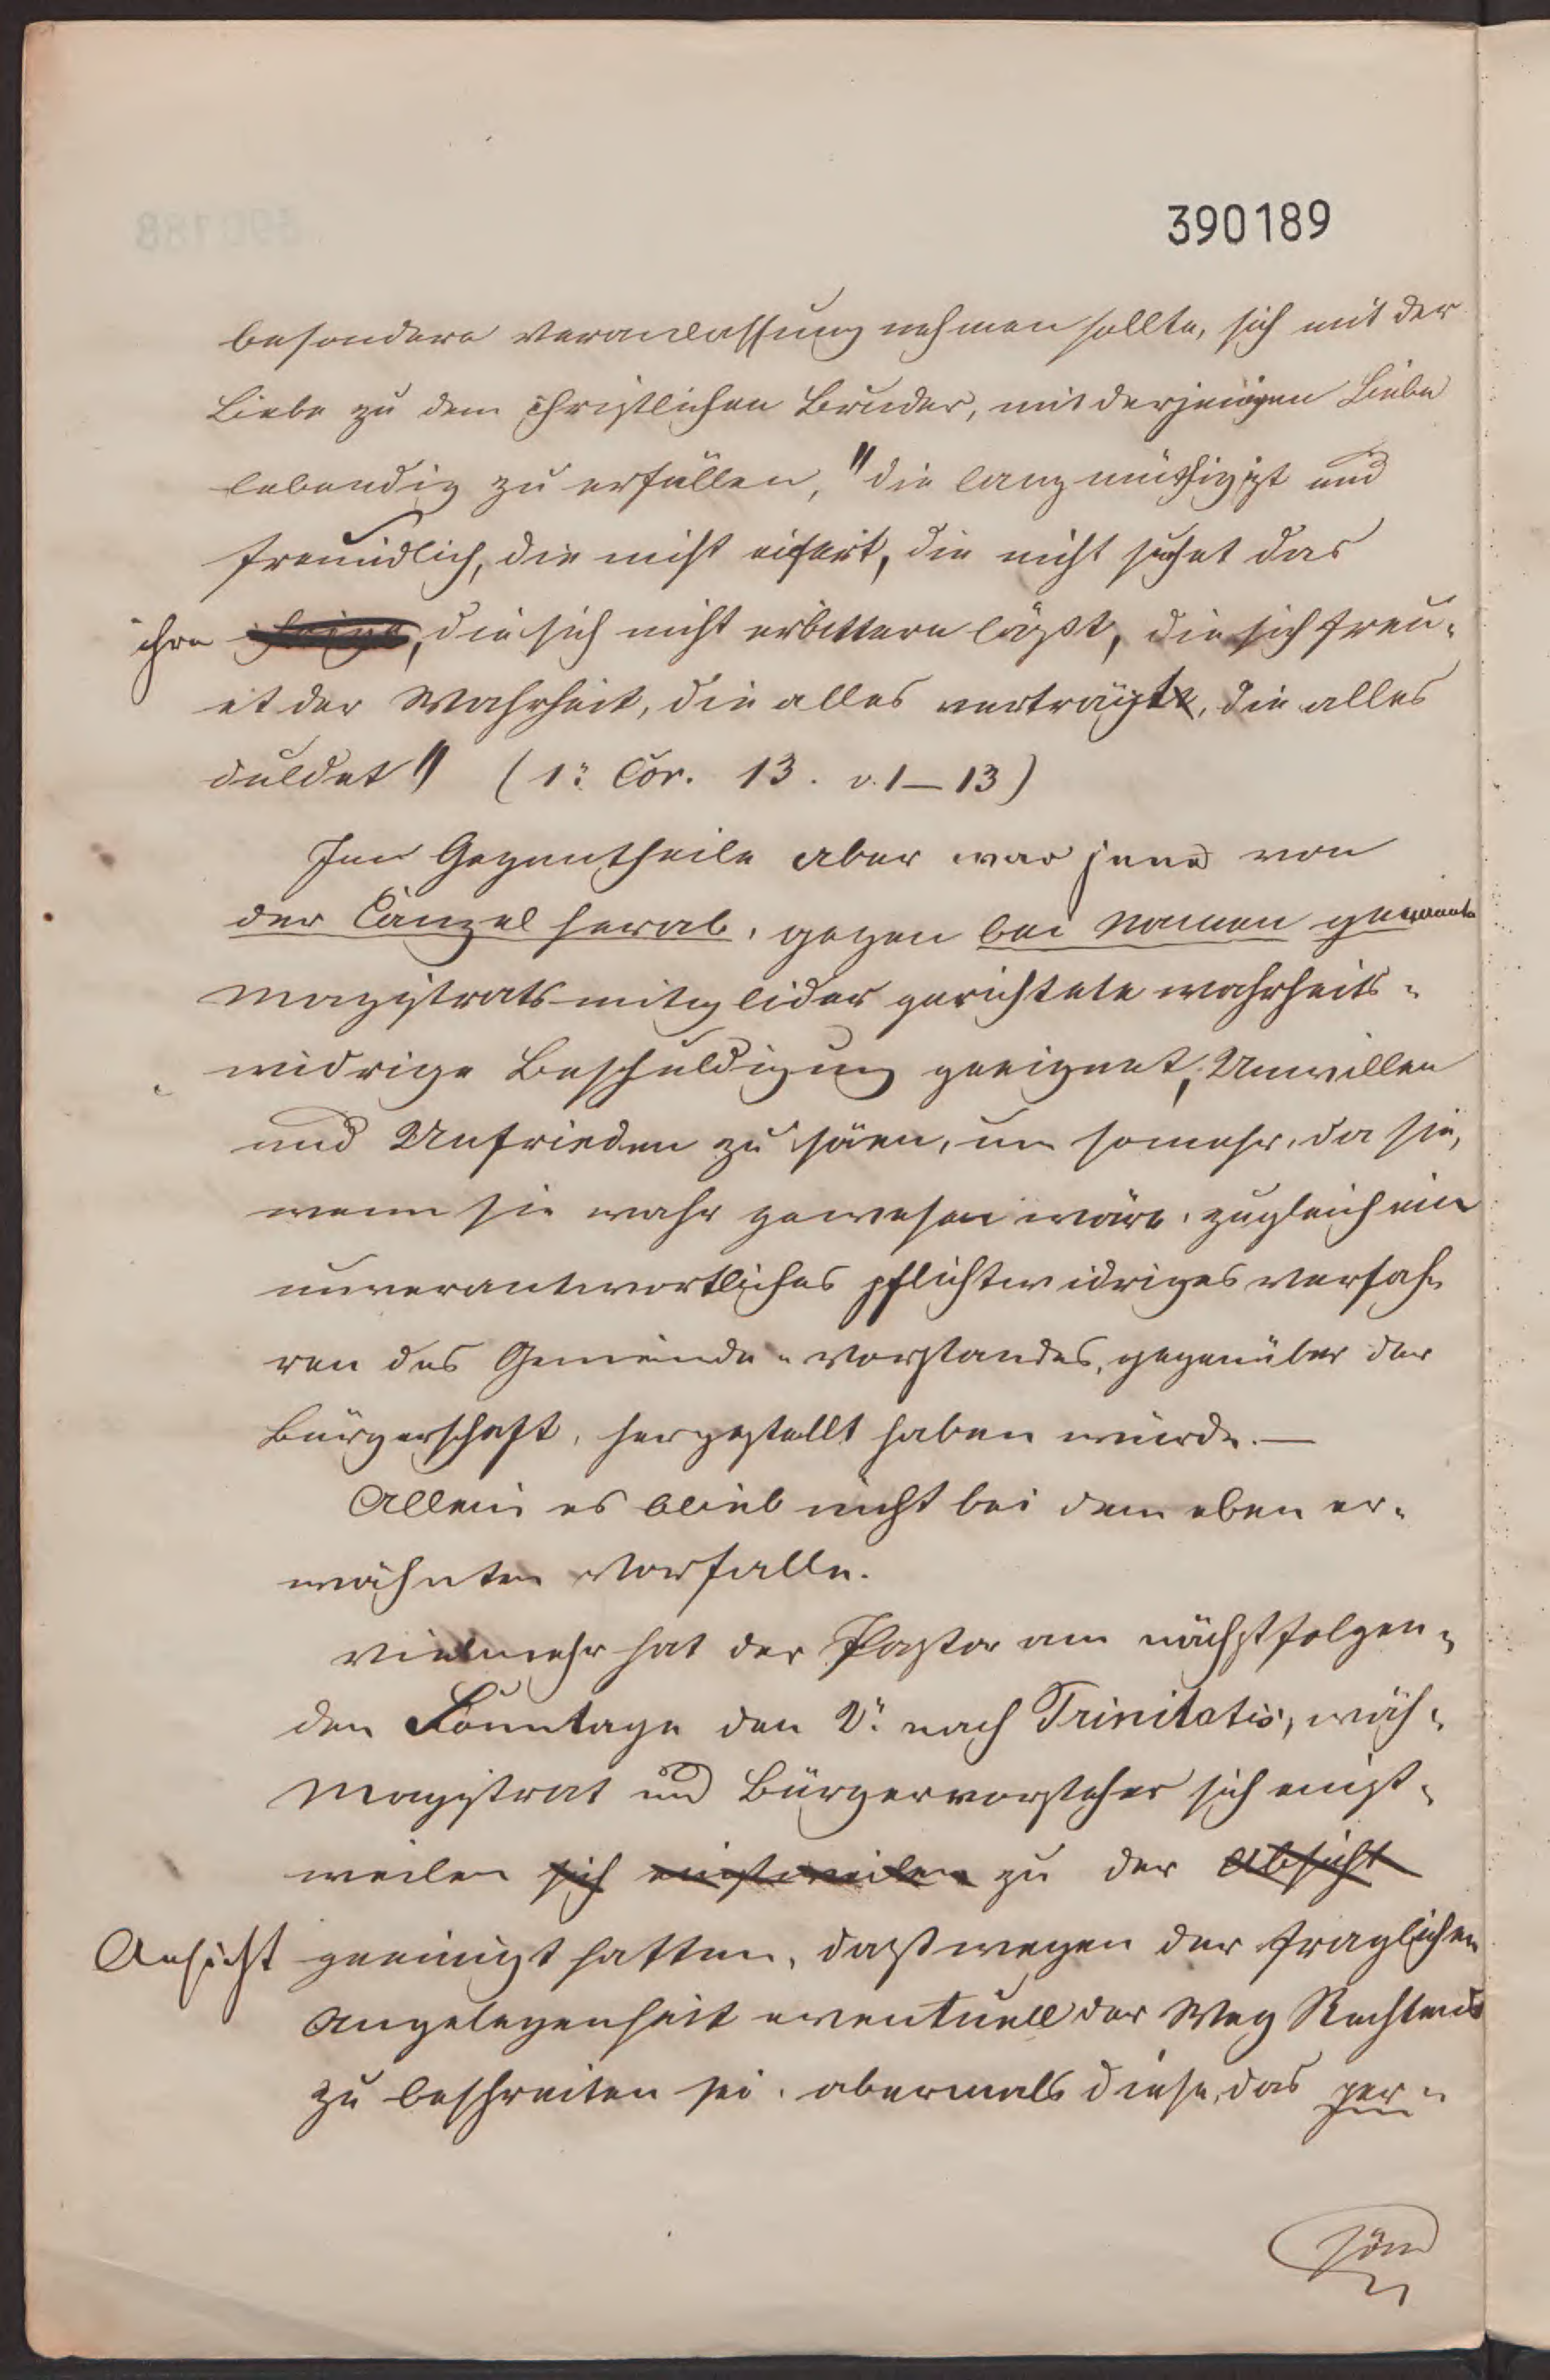 390189
besondere Veranlassung nehmen sollte, sich mit der
Liebe zu dem christlichen Bruder, mit derjenigen Liebe
lebendig zu erfüllen, "die langmüthig ist und
freundlich, die nicht eifert, die nicht suchet das
ihre seine, die sich nicht erbittern läßt, die sich freu-
et der Wahrheit, die alles verträgt, die alles
duldet" (1. Cor. 13. v. 1–13)
Im Gegentheile aber war jene von
der Canzel herab, gegen bei Namen genannte
Magistratsmitglider gerichtete wahrheits-
widrige Beschuldigung geeignet, Unwillen
und Unfrieden zu säen, um somehr, da sie,
wenn sie wahr gewesen wäre, zugleich ein
unverantwortliches pflichtwidriges Verfah-
ren des Gemeinde-Vorstandes, gegenüber der
Bürgerschaft, hergestellt haben würde. —
Allein es blieb nicht bei dem eben er-
wähnten Vorfalle.
Vielmehr hat der Pastor am nächstfolgen-
den Sonntage den 2. nach Trinitatis, wäh-
Magistrat und Bürgervorsteher sich einst-
weilen sich einstweilen zu der Absicht
Ansicht geeinigt hatten, daß wegen der fraglichen
Angelegenheit eventuell der Weg Rechtens
zu beschreiten sei, abermals diese, das per-
sön